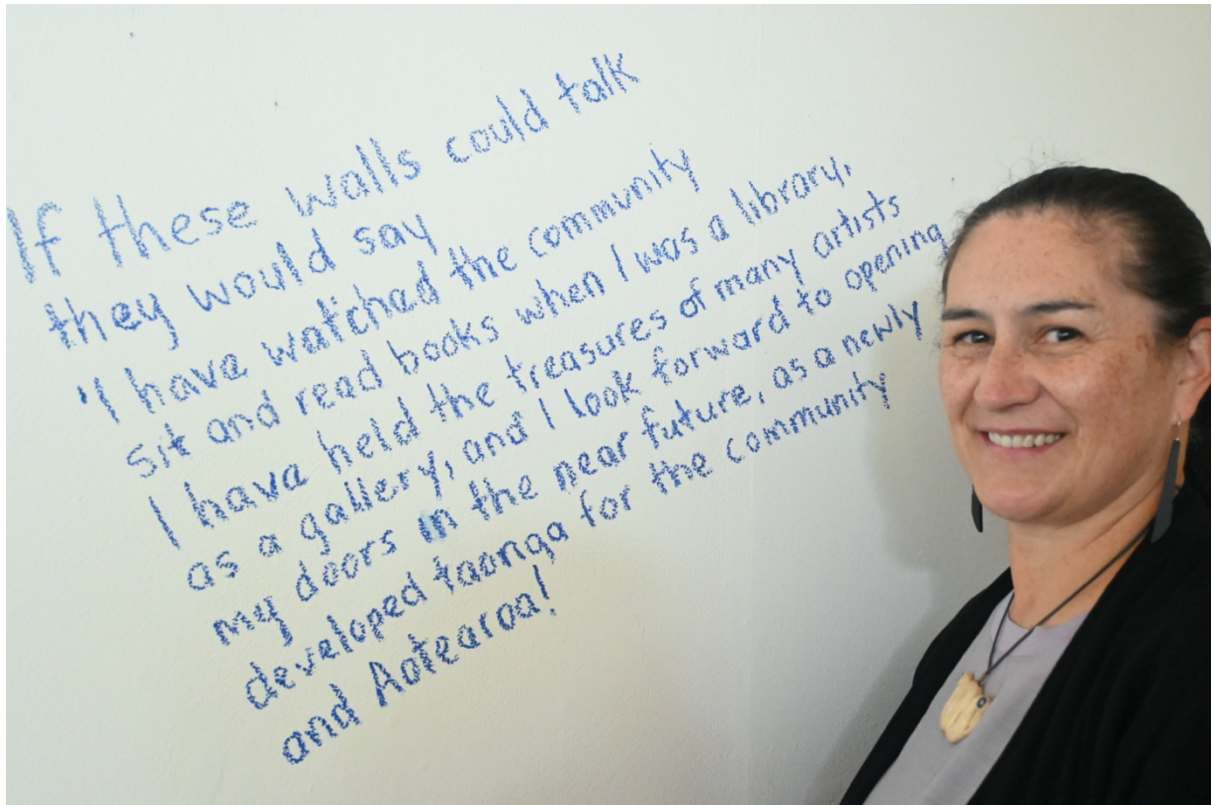 If these walls could talk
they would say
'I have watched the community
sit and read books when I was a library,
I have held the treasures of many artists
as a gallery, and I look forward to opening
my doors in the near future, as a newly
developed taonga for the community
and Aotearoa!